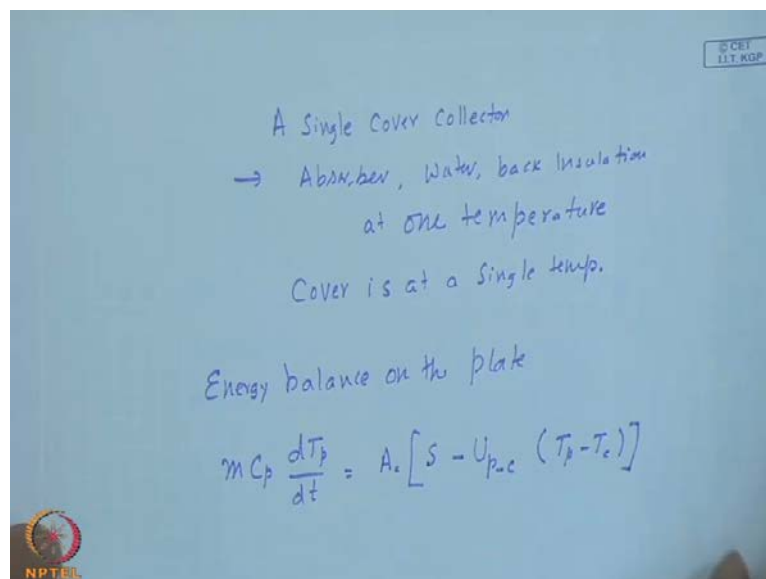 © CET
I.I.T. KGP
A Single Cover Collector
→ Absorber, Water, back Insulation
at one temperature
Cover is at a Single temp.
Energy balance on the plate
m Cp dTp/dt = Ac [S - Up-c (Tp - Tc)]
NPTEL